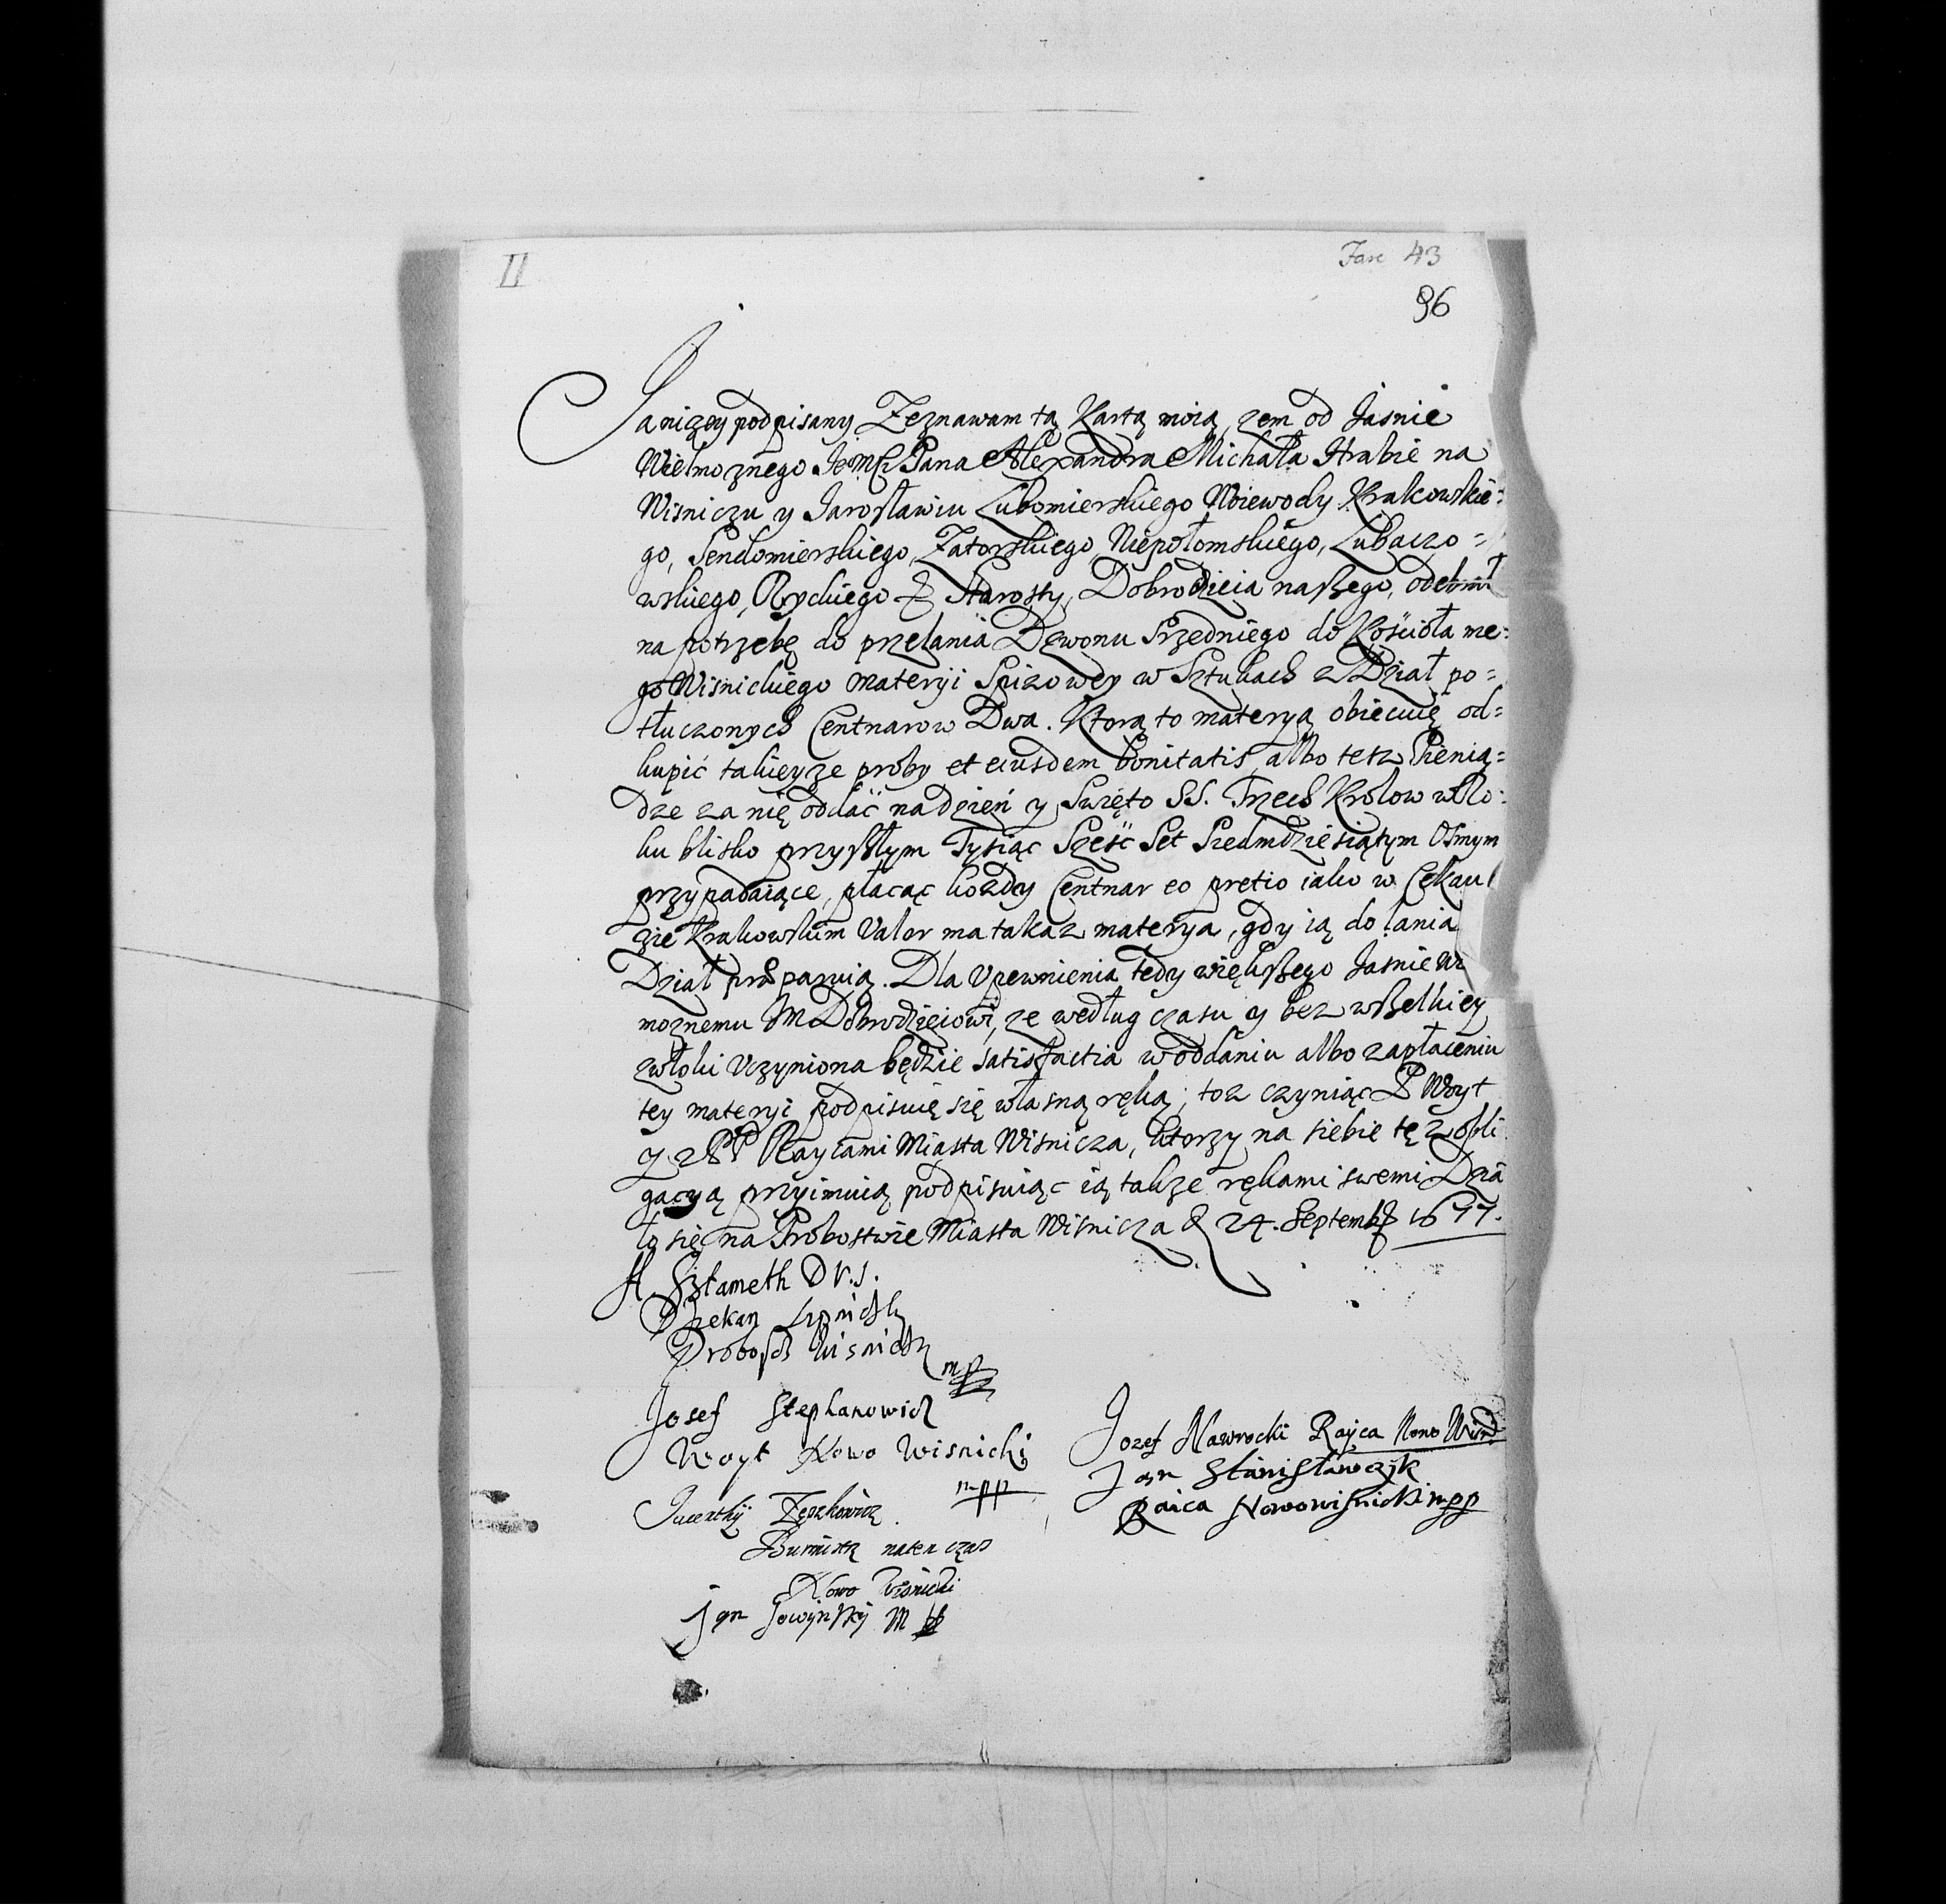 II
Fasc 43
96
Ja niżey podpisany Zeznawam tą Kartą moią, zem od Jasnie
Wielmoznego Je Mści Pana Alexandra Michała Hrabie na
Wisniczu y Jarosławiu Lubomierskiego Woiewody Krakowskie=
go, Sendomierskiego, Zatorskiego, Niepołomskiego, Lubaczo=
wskiego, Ryckiego & Starosty, Dobrodzieia naszego, odebrał
na potrzebę do przelania Dzwonu Przedniego do Kościoła me=
go Wisnickiego materyi Spizowey w Sztukach z Dział po=
tłuczonych Centnarow Dwa. Ktorą to materyą obiecuię od=
kupić takieyze proby et eiusdem bonitatis, albo tesz Pienią=
dze za nię oddać na dzień y Swięto SS. Trzech Krolow w Ro=
ku blisko przyszłym Tysiąc Szesć Set Siedmdziesiątym Osmym
przypadaiące, płacąc kozdy Centnar eo pretio iako w Cekau
zie Krakowskim Valor ma takaz materya, gdy ią do lania
Dział præparuią. Dla Upewnienia tedy większego Jasnie W
moznemu M Dobrodzieiowi, ze według czasu y bez wszelkiey
zwłoki Uczyniona będzie satisfactia w oddaniu albo zapłaceniu
tey materyi podpisuię się własną ręką; toz czyniąc P Woyt
y z PP Raycami Miasta Wisnicza, ktorzy na siebie tęz obli
gacyą przyimuią podpisuiąc ią takze rękami swemi Dzia
ło się na Probostwie Miasta Wisnicza & 24. Septembr 1677.
Dziekan Lipnicki
Probosch Wisnicki
mp
Josef Stephanowicz
Woyt Nowo Wisnicki
mpp
Jozef Nawrocki Rayca Nowo Wisn
Jan Stanisławczyk
Raica Nowowisnicki mpp
Burmistrz naten czas
Nowo Wisnicki
Jan